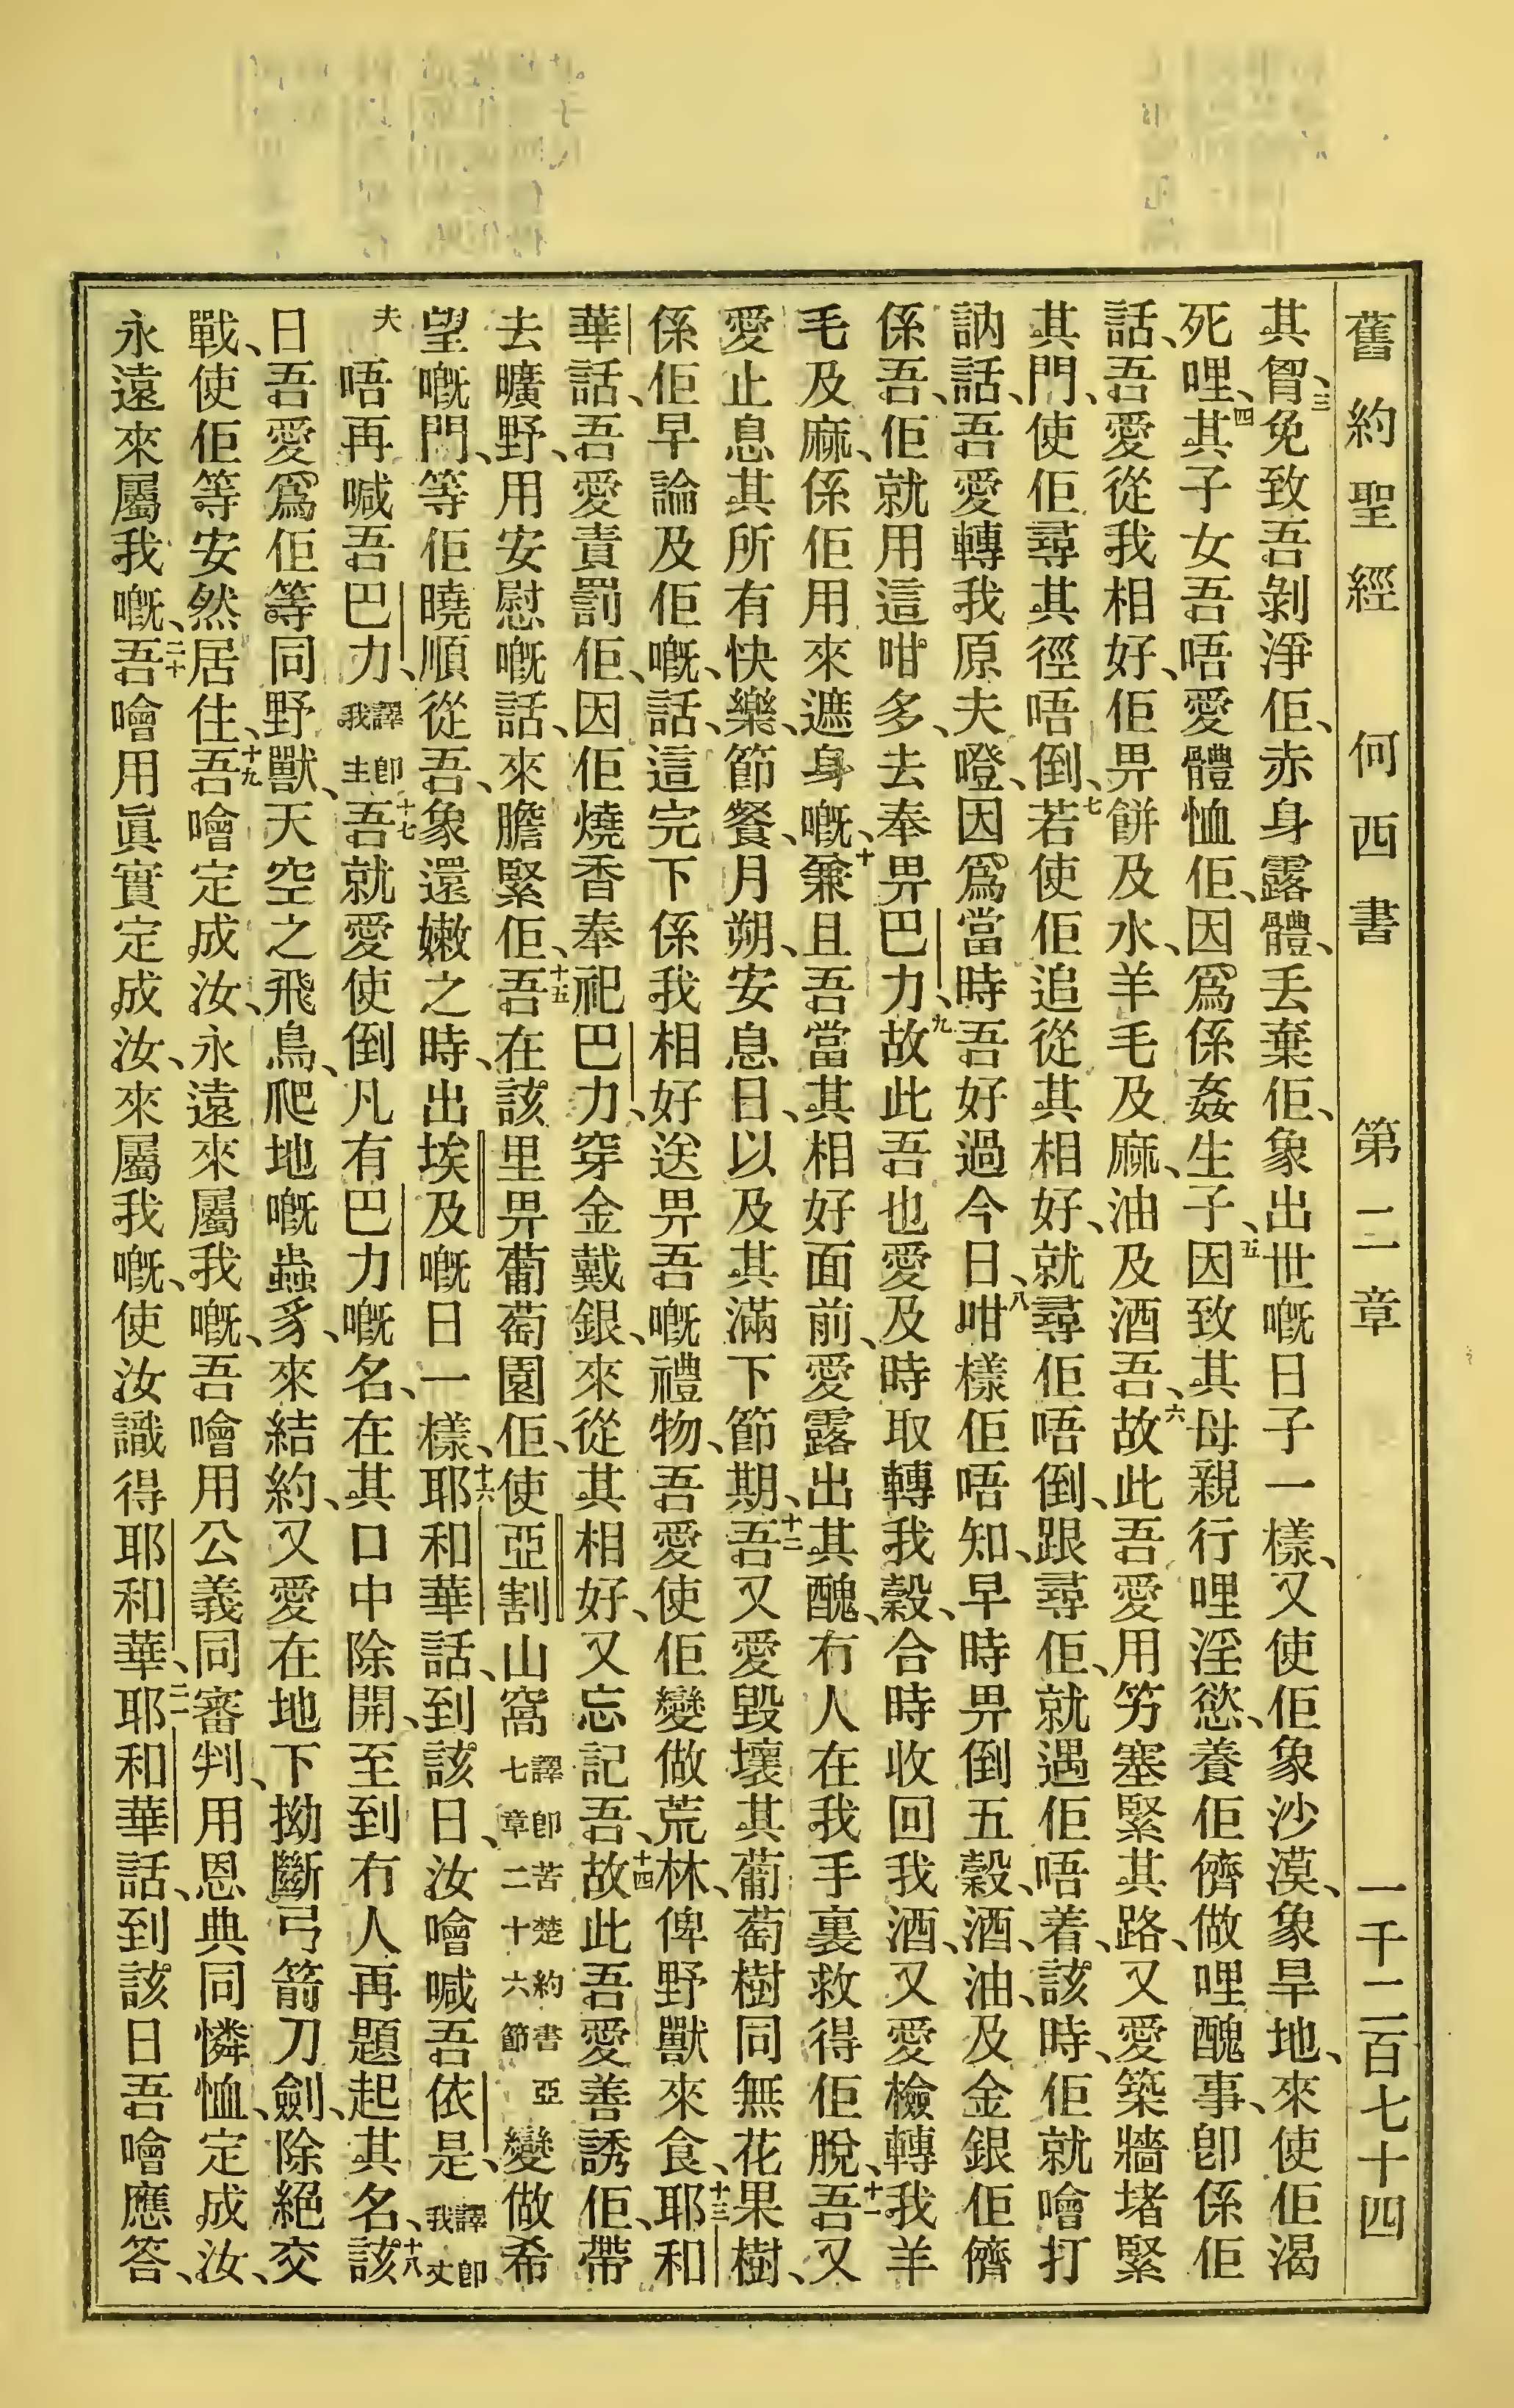 舊約聖經 何西書 第二章 一千二百七十四
其胷、三免致吾剝淨佢、赤身露體、丟棄佢、象出世嘅日子一樣、又使佢象沙漠、象旱地、來使佢渴
死哩、四其子女吾唔愛體恤佢、因爲係姦生子、五因致其母親行哩淫慾、養佢儕做哩醜事、卽係佢
話、吾愛從我相好、佢畀餅及水、羊毛及麻、油及酒吾、六故此吾愛用竻塞緊其路、又愛築牆堵緊
其門、使佢尋其徑唔倒、七若使佢追從其相好、就尋佢唔倒、跟尋佢、就遇佢唔着、該時、佢就噲打
訥話、吾愛轉我原夫嶝、因爲當時吾好過今日、八咁樣佢唔知、早時畀倒五穀、酒、油、及金銀佢儕
係吾、佢就用這咁多、去奉畀巴力、九故此吾也愛及時取轉我穀、合時收回我酒、又愛檢轉我羊
毛及麻、係佢用來遮身嘅、十兼且吾當其相好面前、愛露出其醜、冇人在我手裏救得佢脫、十一吾又
愛止息其所有快樂、節餐、月朔、安息日、以及其滿下節期、十二吾又愛毀壞其葡萄樹同無花果樹、
係佢早論及佢嘅、話、這完下係我相好送畀吾嘅禮物、吾愛使佢變做荒林、俾野獸來食、十三耶和
華話、吾愛責罰佢、因佢燒香奉祀巴力、穿金戴銀、來從其相好、又忘記吾、十四故此吾愛善誘佢、帶
去曠野、用安慰嘅話、來膽緊佢、十五吾在該里畀葡萄園佢、使亞割山窩譯卽苦楚約書亞七章二十六節變做希
望嘅門、等佢曉順從吾、象還嫩之時、出埃及嘅日一樣、十六耶和華話、到該日、汝噲喊吾依是、譯卽我丈
夫唔再喊吾巴力、譯卽我主十七吾就愛使倒凡有巴力嘅名、在其口中除開、至到冇人再題起其名、十八該
日吾愛爲佢等同野獸、天空之飛鳥、爬地嘅蟲豸、來結約、又愛在地下拗斷弓箭刀劍、除絕交
戰、使佢等安然居住、十九吾噲定成汝、永遠來屬我嘅、吾噲用公義同審判、用恩典同憐恤、定成汝、
永遠來屬我嘅、二十吾噲用眞實定成汝、來屬我嘅、使汝識得耶和華、二一耶和華話、到該日吾噲應答、